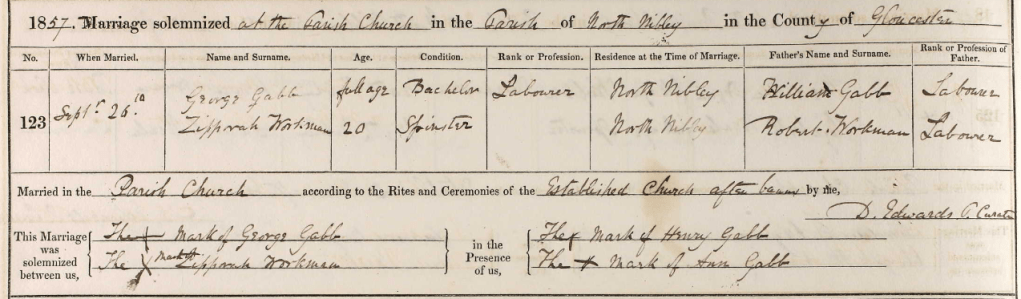 1857. Marriage solemnized at the Parish Church in the Parish of North Nibley in the County of Gloucester
No. When Married. Name and Surname. Age. Condition. Rank or Profession. Residence at the Time of Marriage. Father's Name and Surname. Rank or Profession of Father.
123 Septr 26th George Gabb full age Bachelor Labourer North Nibley William Gabb Labourer
Zipporah Workman 20 Spinster North Nibley Robert Workman Labourer
Married in the Parish Church according to the Rites and Ceremonies of the Established Church after banns by me,
D. Edwards P. Curate
This Marriage was solemnized between us, The mark of George Gabb
The mark of Zipporah Workman
in the Presence of us, The x mark of Henry Gabb
The x mark of Ann Gabb